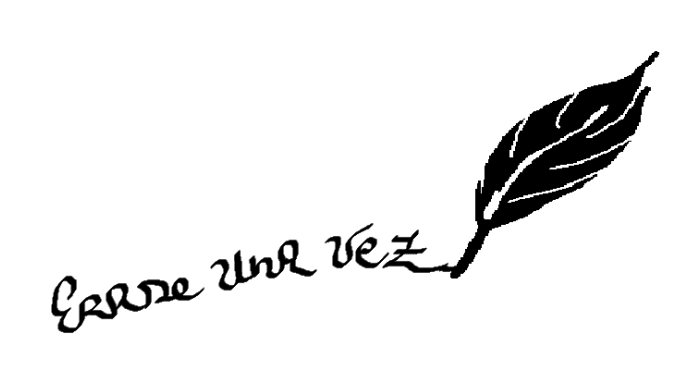 Erase Una Vez